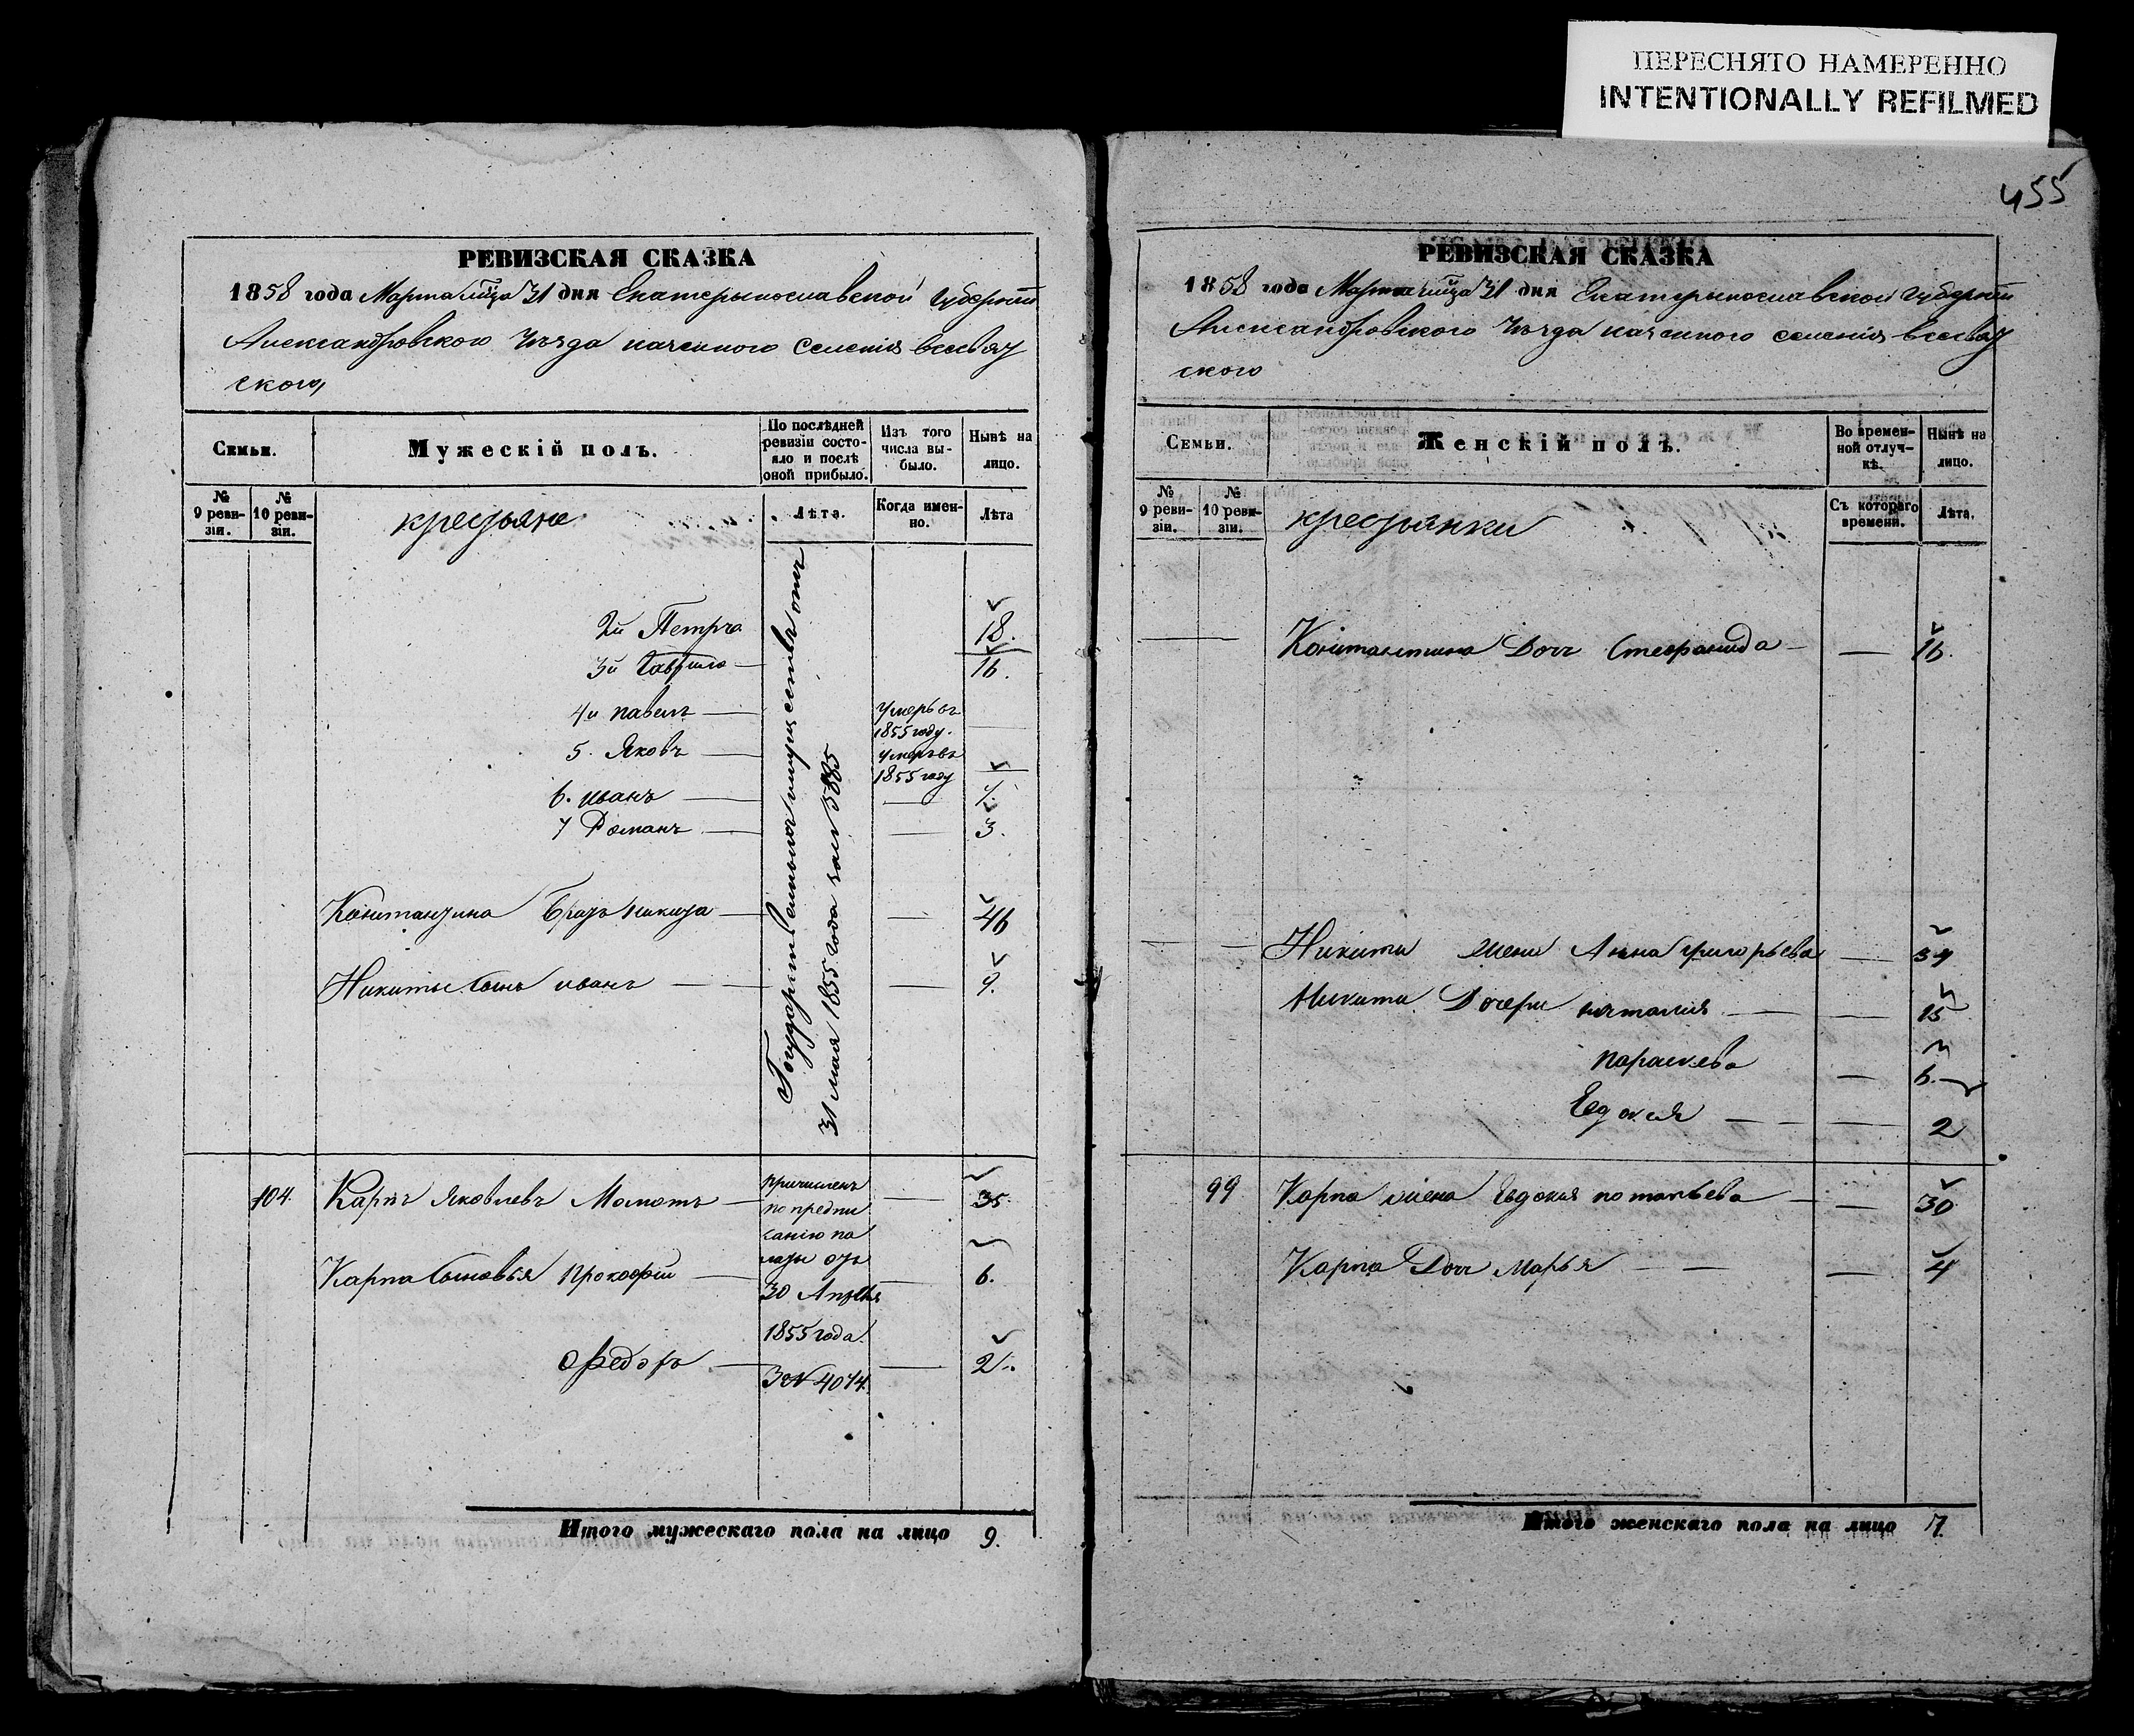 ПЕРЕСНЯТО НАМЕРЕННО
INTENTIONALLY REFILMED
455
РЕВИЗСКАЯ СКАЗКА
1858 года Марта м̃ца 31 дня Екатеринославской Губернии
Александровского Уезда казенного селения всесвят
ского,
Семьи.
Мужескій полъ.
По послѣдней
ревизіи состо-
яло и послѣ
оной прибыло.
Изъ того
числа вы-
было.
Нынѣ на
лицо.
№
9 реви-
зіи.
№
10 реви-
зіи.
крестьяне
Лѣта.
Когда имен-
но.
Лѣта
2й Петръ 18.
3й Гаврило 16.
4й павелъ умеръ въ
1855 году.
5. Яковъ умеръ въ
1855 году
6. иванъ 7.
7 Романъ 3.
Государственныхъ имуществъ отъ
31 мая 1855 года за № 5885
Константина братъ никита 46
Никиты сынъ иванъ 9.
104. Карпъ Яковлевъ Момотъ 35.
причисленъ
по предпи
санію па
латы отъ
30 Апреля
1855 года.
За № 4074.
Карпа сыновья Прокофій 6.
Федоръ 2.
Итого мужескаго пола на лицо 9.
РЕВИЗСКАЯ СКАЗКА
1858 года Марта м̃ца 31 дня Екатеринославской Губернии
Александровского Уезда казенного селения всесвят
ского
Семьи.
Женскій полъ.
Во времен-
ной отлуч-
кѣ.
Нынѣ на
лицо.
№
9 реви-
зіи.
№
10 реви-
зіи.
крестьянки
Съ котораго
времени.
Лѣта.
Константина Дочь Стефанида 16.
Никиты жена Анна григорьева 39
Никиты Дочери наталия 15
параскева 6.
Евдокия 2
99 Карпа жена Евдокия потапьева 30
Карпа Дочь Марья 4
Итого женскаго пола на лицо 7.